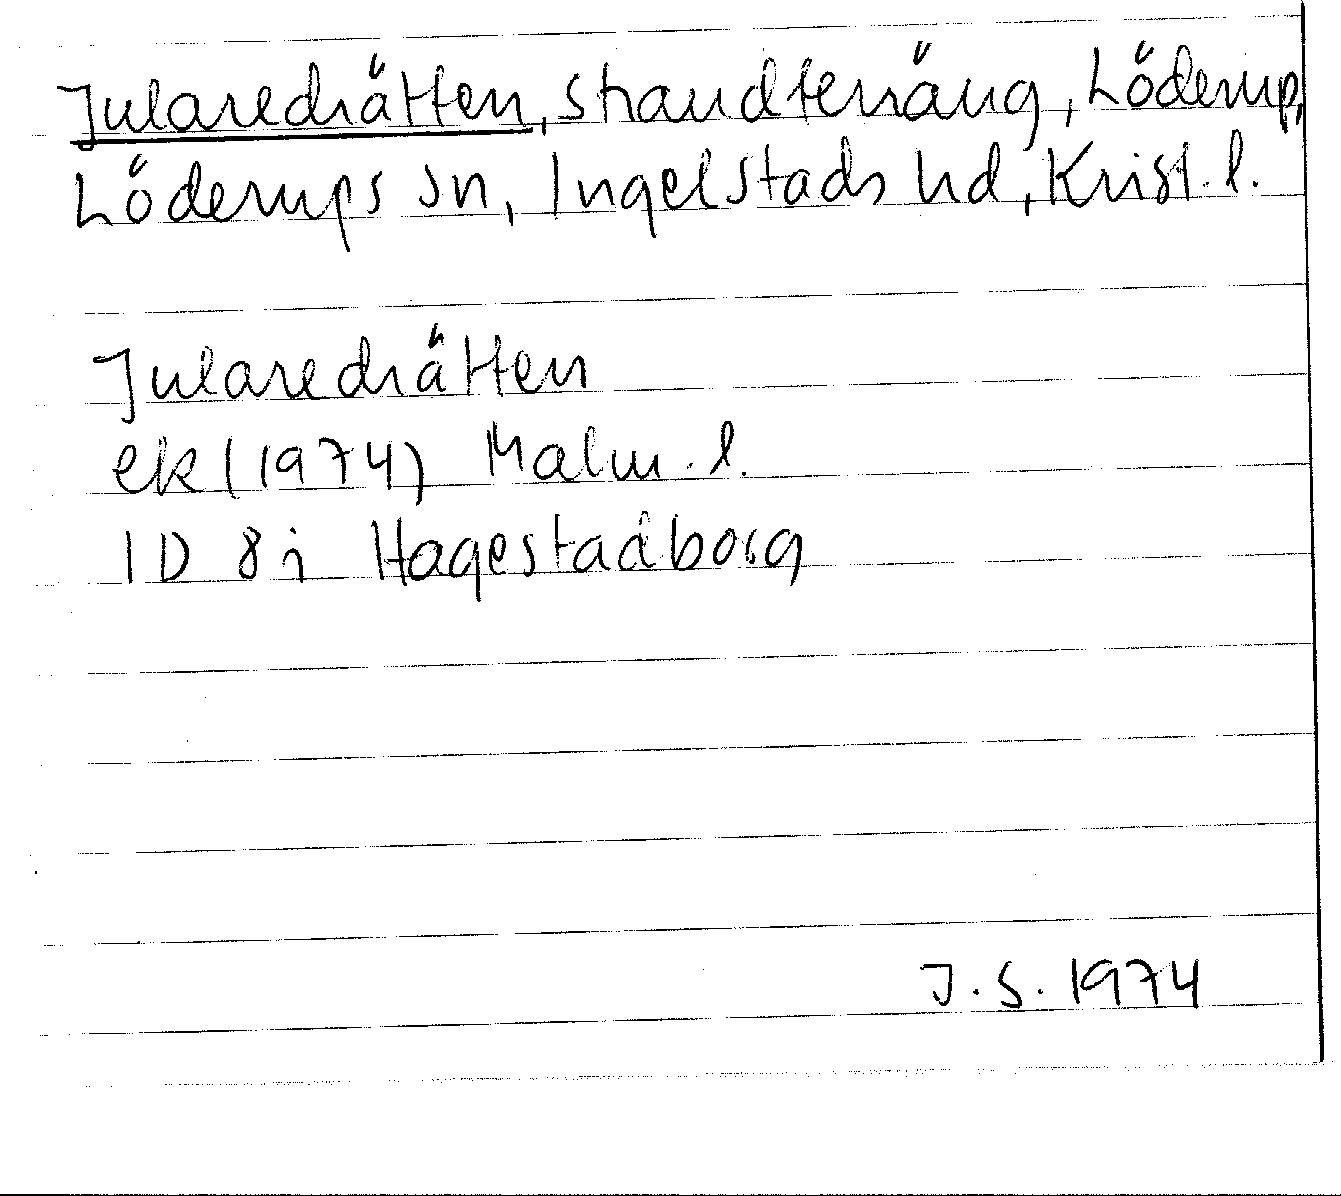 Jularedrätten, strandterräng, Löderup,
Löderups sn, Ingelstads hd, Krist. l.
Jularedrätten
ek (1974) Malm. l.
1D 8i Hagestadborg
J.S. 1974